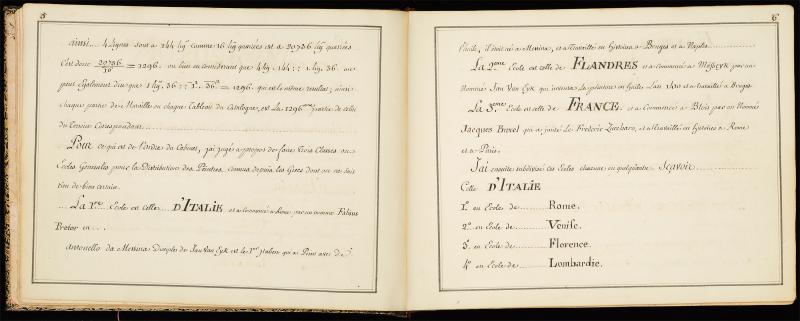 5
ainsi.... 4 Lignes sont a 144 lig. comme 16 lig. quarrées est a 20736 lig. quarrées
C'est donc 20736/16 = 1296. ou bien en considerant que 4 lig. : 144 :: 1. lig. 36. on
peut Egalement dire que 1 lig. 36 :: 1². 36² = 1296. qui est le même resultat; ainsi
chaque partie de Muraille ou chaque Tableau du Catalogue, est La 1296eme partie de celui
du Terrein Correspondant
Pour ce qui est de l'ordre du Cabinet, j'ai jugé a propos de faire Trois Classes ou
Ecoles Generales pour la Distribution des Peintres, connus depuis les Grecs dont on ne sait
rien de bien certain.
La 1ere Ecole est celle D'ITALIE et a commencé a Rome par un nommé Fabius
Pretor en . . .
Antonello da Messina Disciple de Jan Van Eyk est le 1er Italien qui a Peint avec de
6
l'huile, il étoit né a Messina, et a Travaillé en Histoire a Bruges et a Naples
La 2eme Ecole est celle de FLANDRES et a commencé a par un
Nommé Jan Van Eyk qui inventa La peinture en huile L'an 1410 et a travaillé a Bruges
La 3eme Ecole est celle de FRANCE et a Commencé a Blois par un Nommé
Jacques Bunel qui a imité Le Frederic Zucchero, et a Travaillé en histoires a Rome
et a Paris.
J'ai ensuite subdivisé ces Ecoles chacune en quelqu'autre Sçavoir
Celle D'ITALIE
1°. en Ecole de Rome.
2°. en Ecole de Venise.
3°. en Ecole de Florence.
4°. en Ecole de Lombardie.